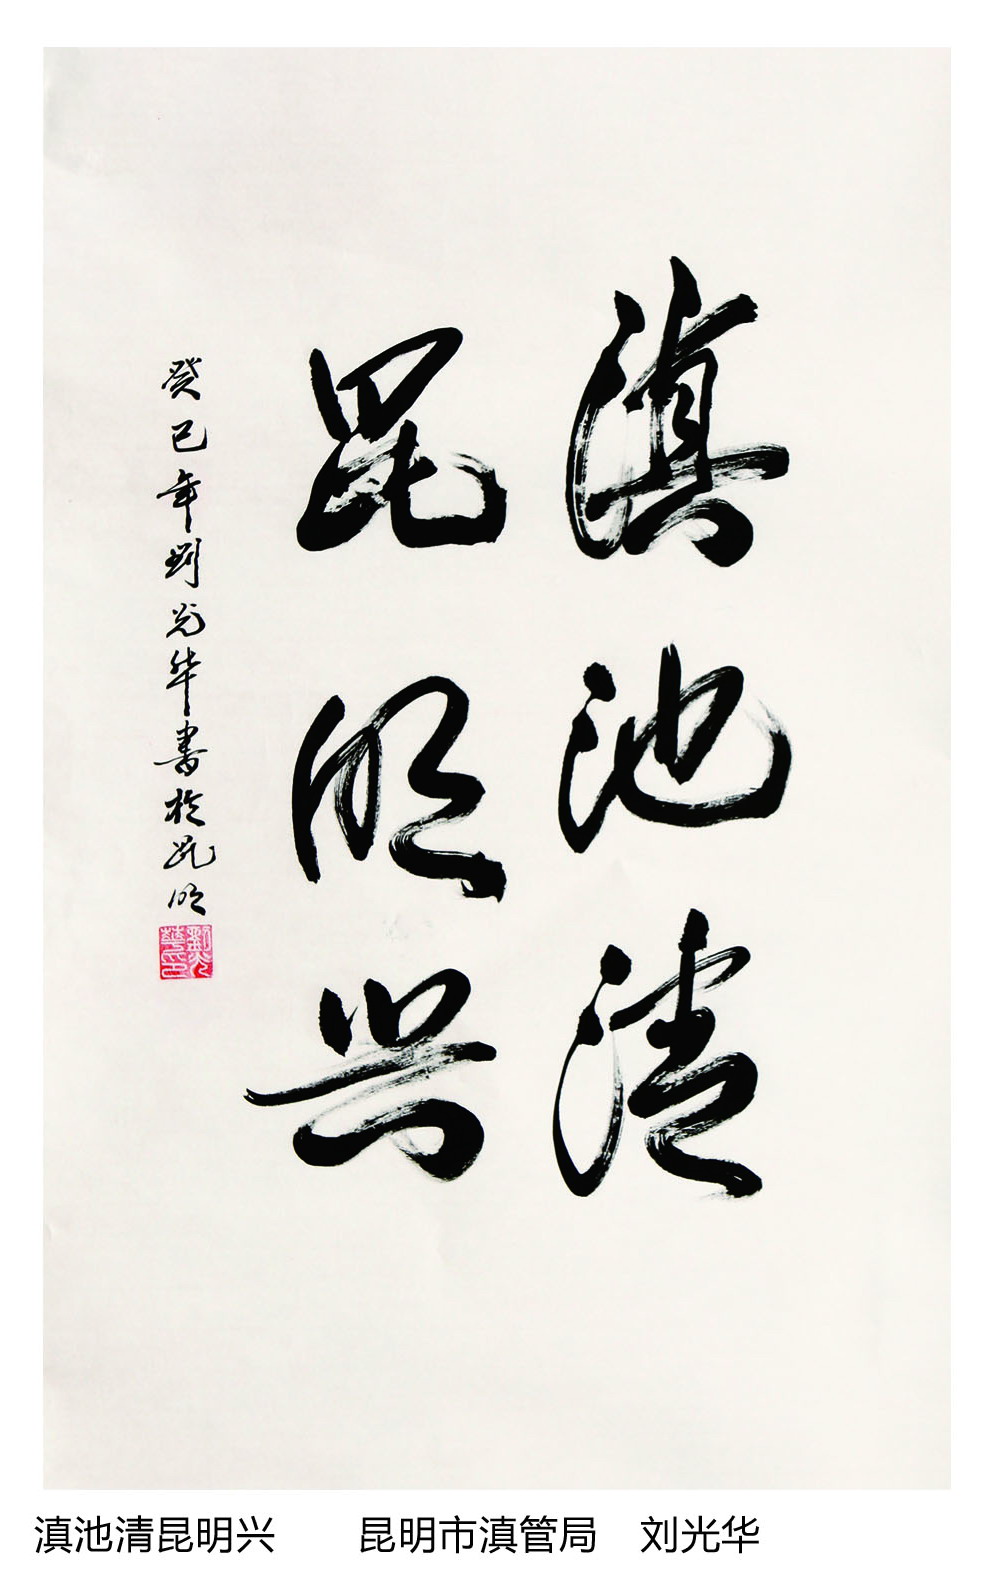 滇池清
昆明兴
癸巳年刘光华书於昆明
劉光華印
滇池清昆明兴 昆明市滇管局 刘光华